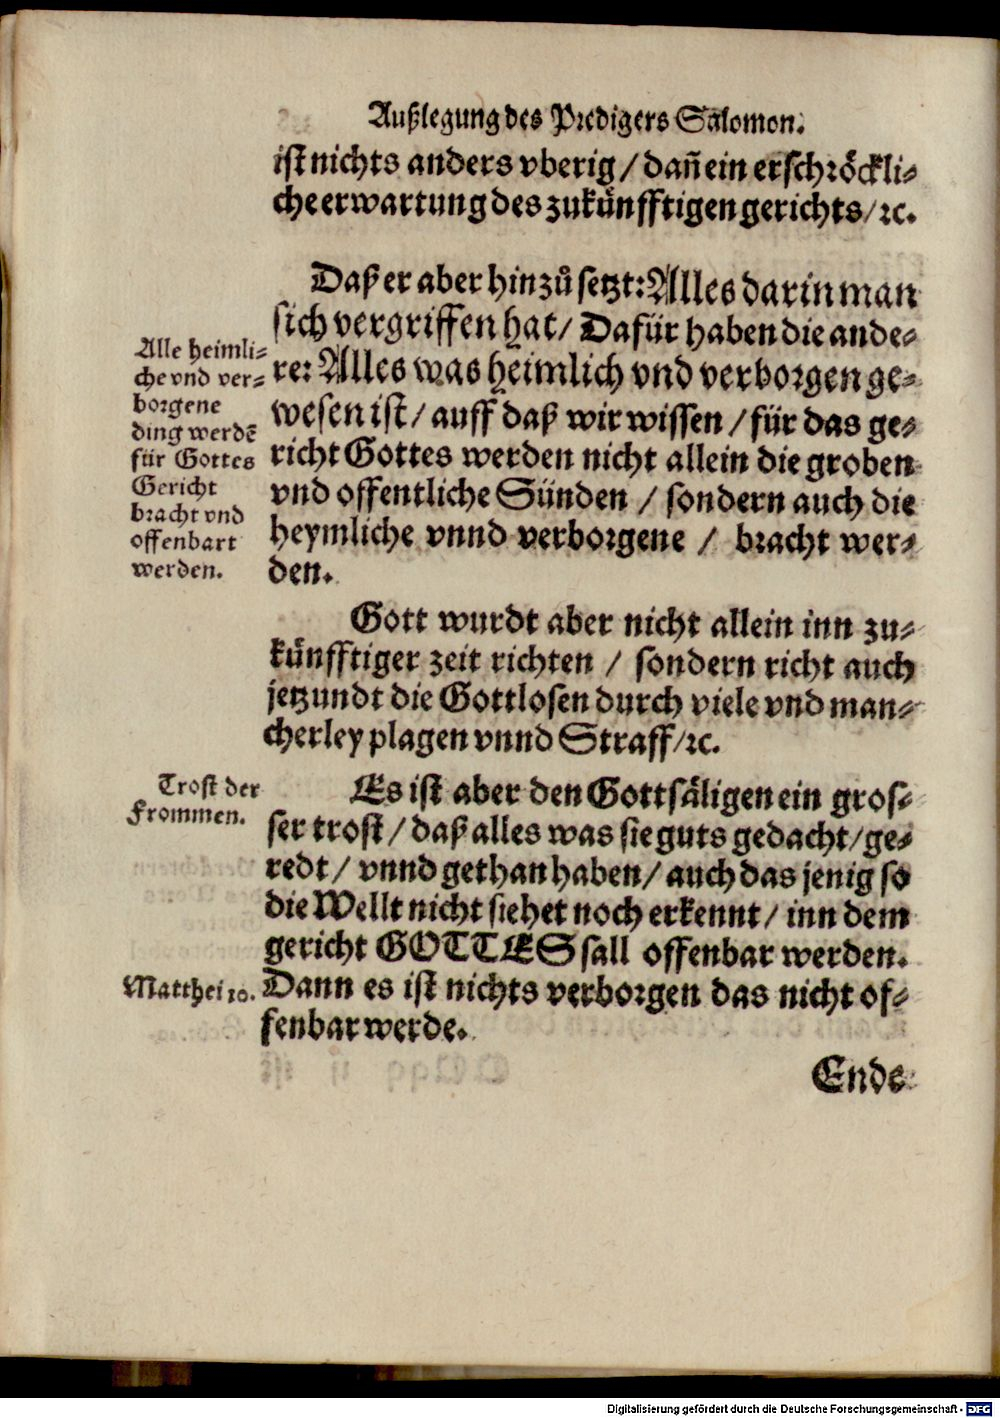 Außlegung des Predigers Salomon.
ist nichts anders vberig / dañ ein erschröckli-
che erwartung des zukünfftigen gerichts / ꝛc.
Daß er aber hinzů setzt: Alles darin man
sich vergriffen hat / Dafür haben die ande-
re: Alles was heimlich vnd verborgen ge-
wesen ist / auff daß wir wissen / für das ge-
richt Gottes werden nicht allein die groben
vnd offentliche Sünden / sondern auch die
heymliche vnnd verborgene / bracht wer-
den.
Alle heimli-
che vnd ver-
borgene
ding werdē
für Gottes
Gericht
bracht vnd
offenbart
werden.
Gott wurdt aber nicht allein inn zu-
künfftiger zeit richten / sondern richt auch
jetzundt die Gottlosen durch viele vnd man-
cherley plagen vnnd Straff / ꝛc.
Trost der
Frommen.
Es ist aber den Gottsäligen ein gros-
ser trost / daß alles was sie guts gedacht / ge-
redt / vnnd gethan haben / auch das jenig so
die Wellt nicht siehet noch erkennt / inn dem
gericht GOTTES sall offenbar werden.
Matthei 10.
Dann es ist nichts verborgen das nicht of-
fenbar werde.
Ende
Digitalisierung gefördert durch die Deutsche Forschungsgemeinschaft - DFG